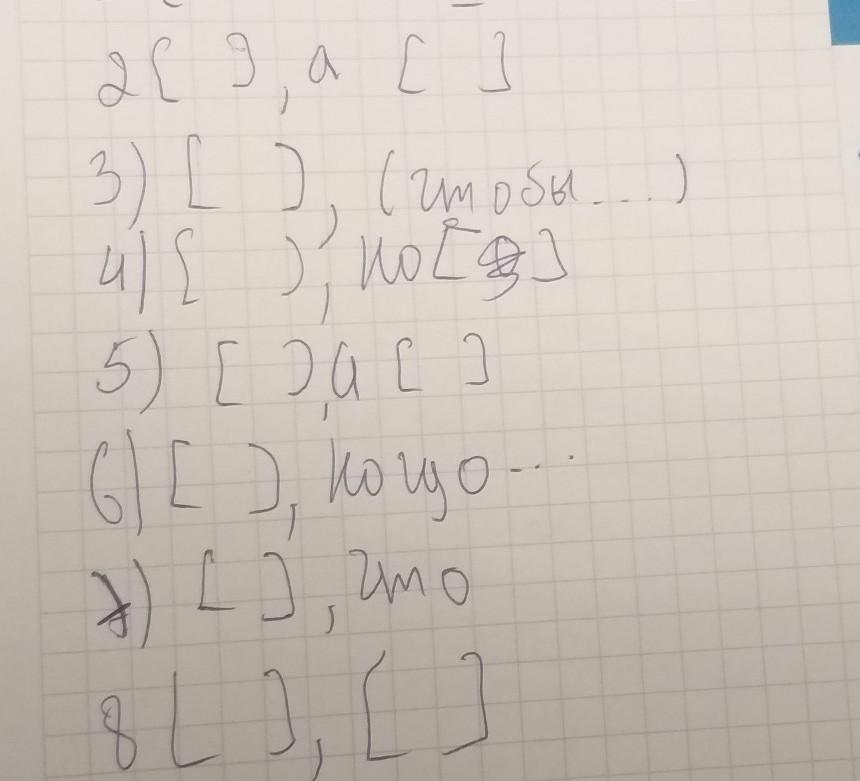 2 [ ], а [ ]
3) [ ], (чтобы...)
4) [ ], но [ ]
5) [ ], а [ ]
6) [ ], когда...
7) [ ], что
8 [ ], [ ]